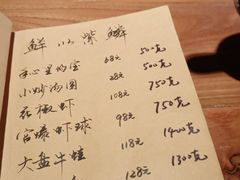 鲜 以 紫 鳞
手心里的宝 68元 500克
小炒汤圆 28元 500克
花椒虾 108元 750克
宫爆虾球 98元 750克
大盘牛蛙 118元 1400克
128元 1300克